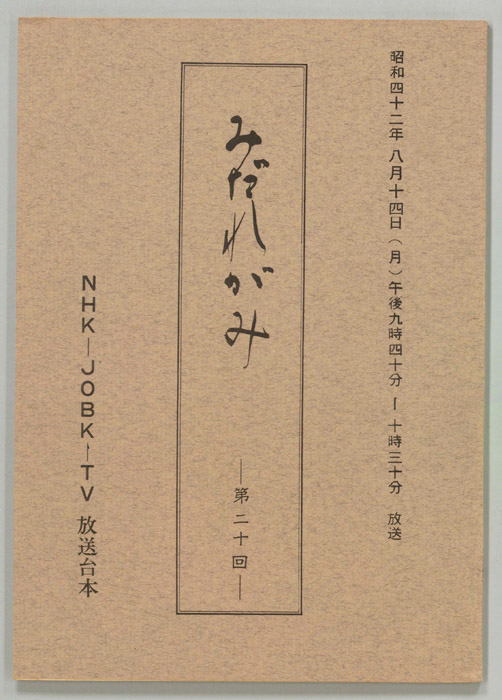 昭和四十二年 八月十四日（月）午後九時四十分ー十時三十分 放送
みだれがみ
―第二十回―
NHK―JOBK―TV 放送台本